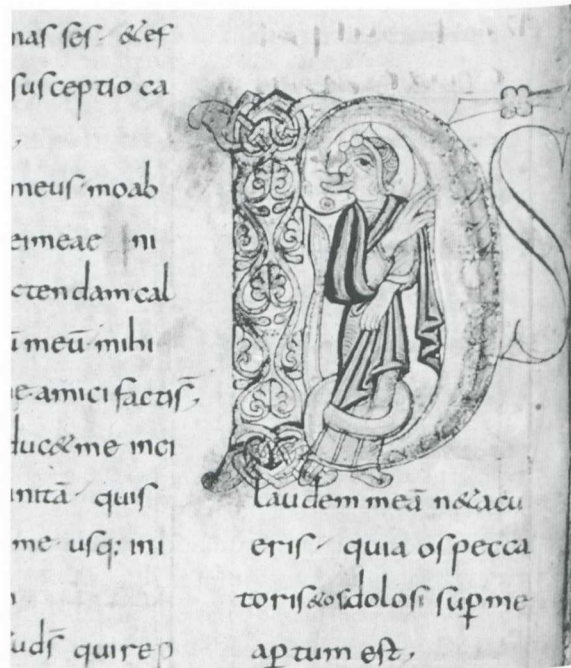 nas ses· &ef
susceptio ca
meus· moab
ei meae ni
ctendam cal
ū meū· mihi
e· amici factis̄,
duc& me inci
unitā· quis
me usq: ini
uds̄ qui rep
DS
laudem meā n& acu
eris· quia os pecca
toris & os dolosi sup̄ me
apertum est,